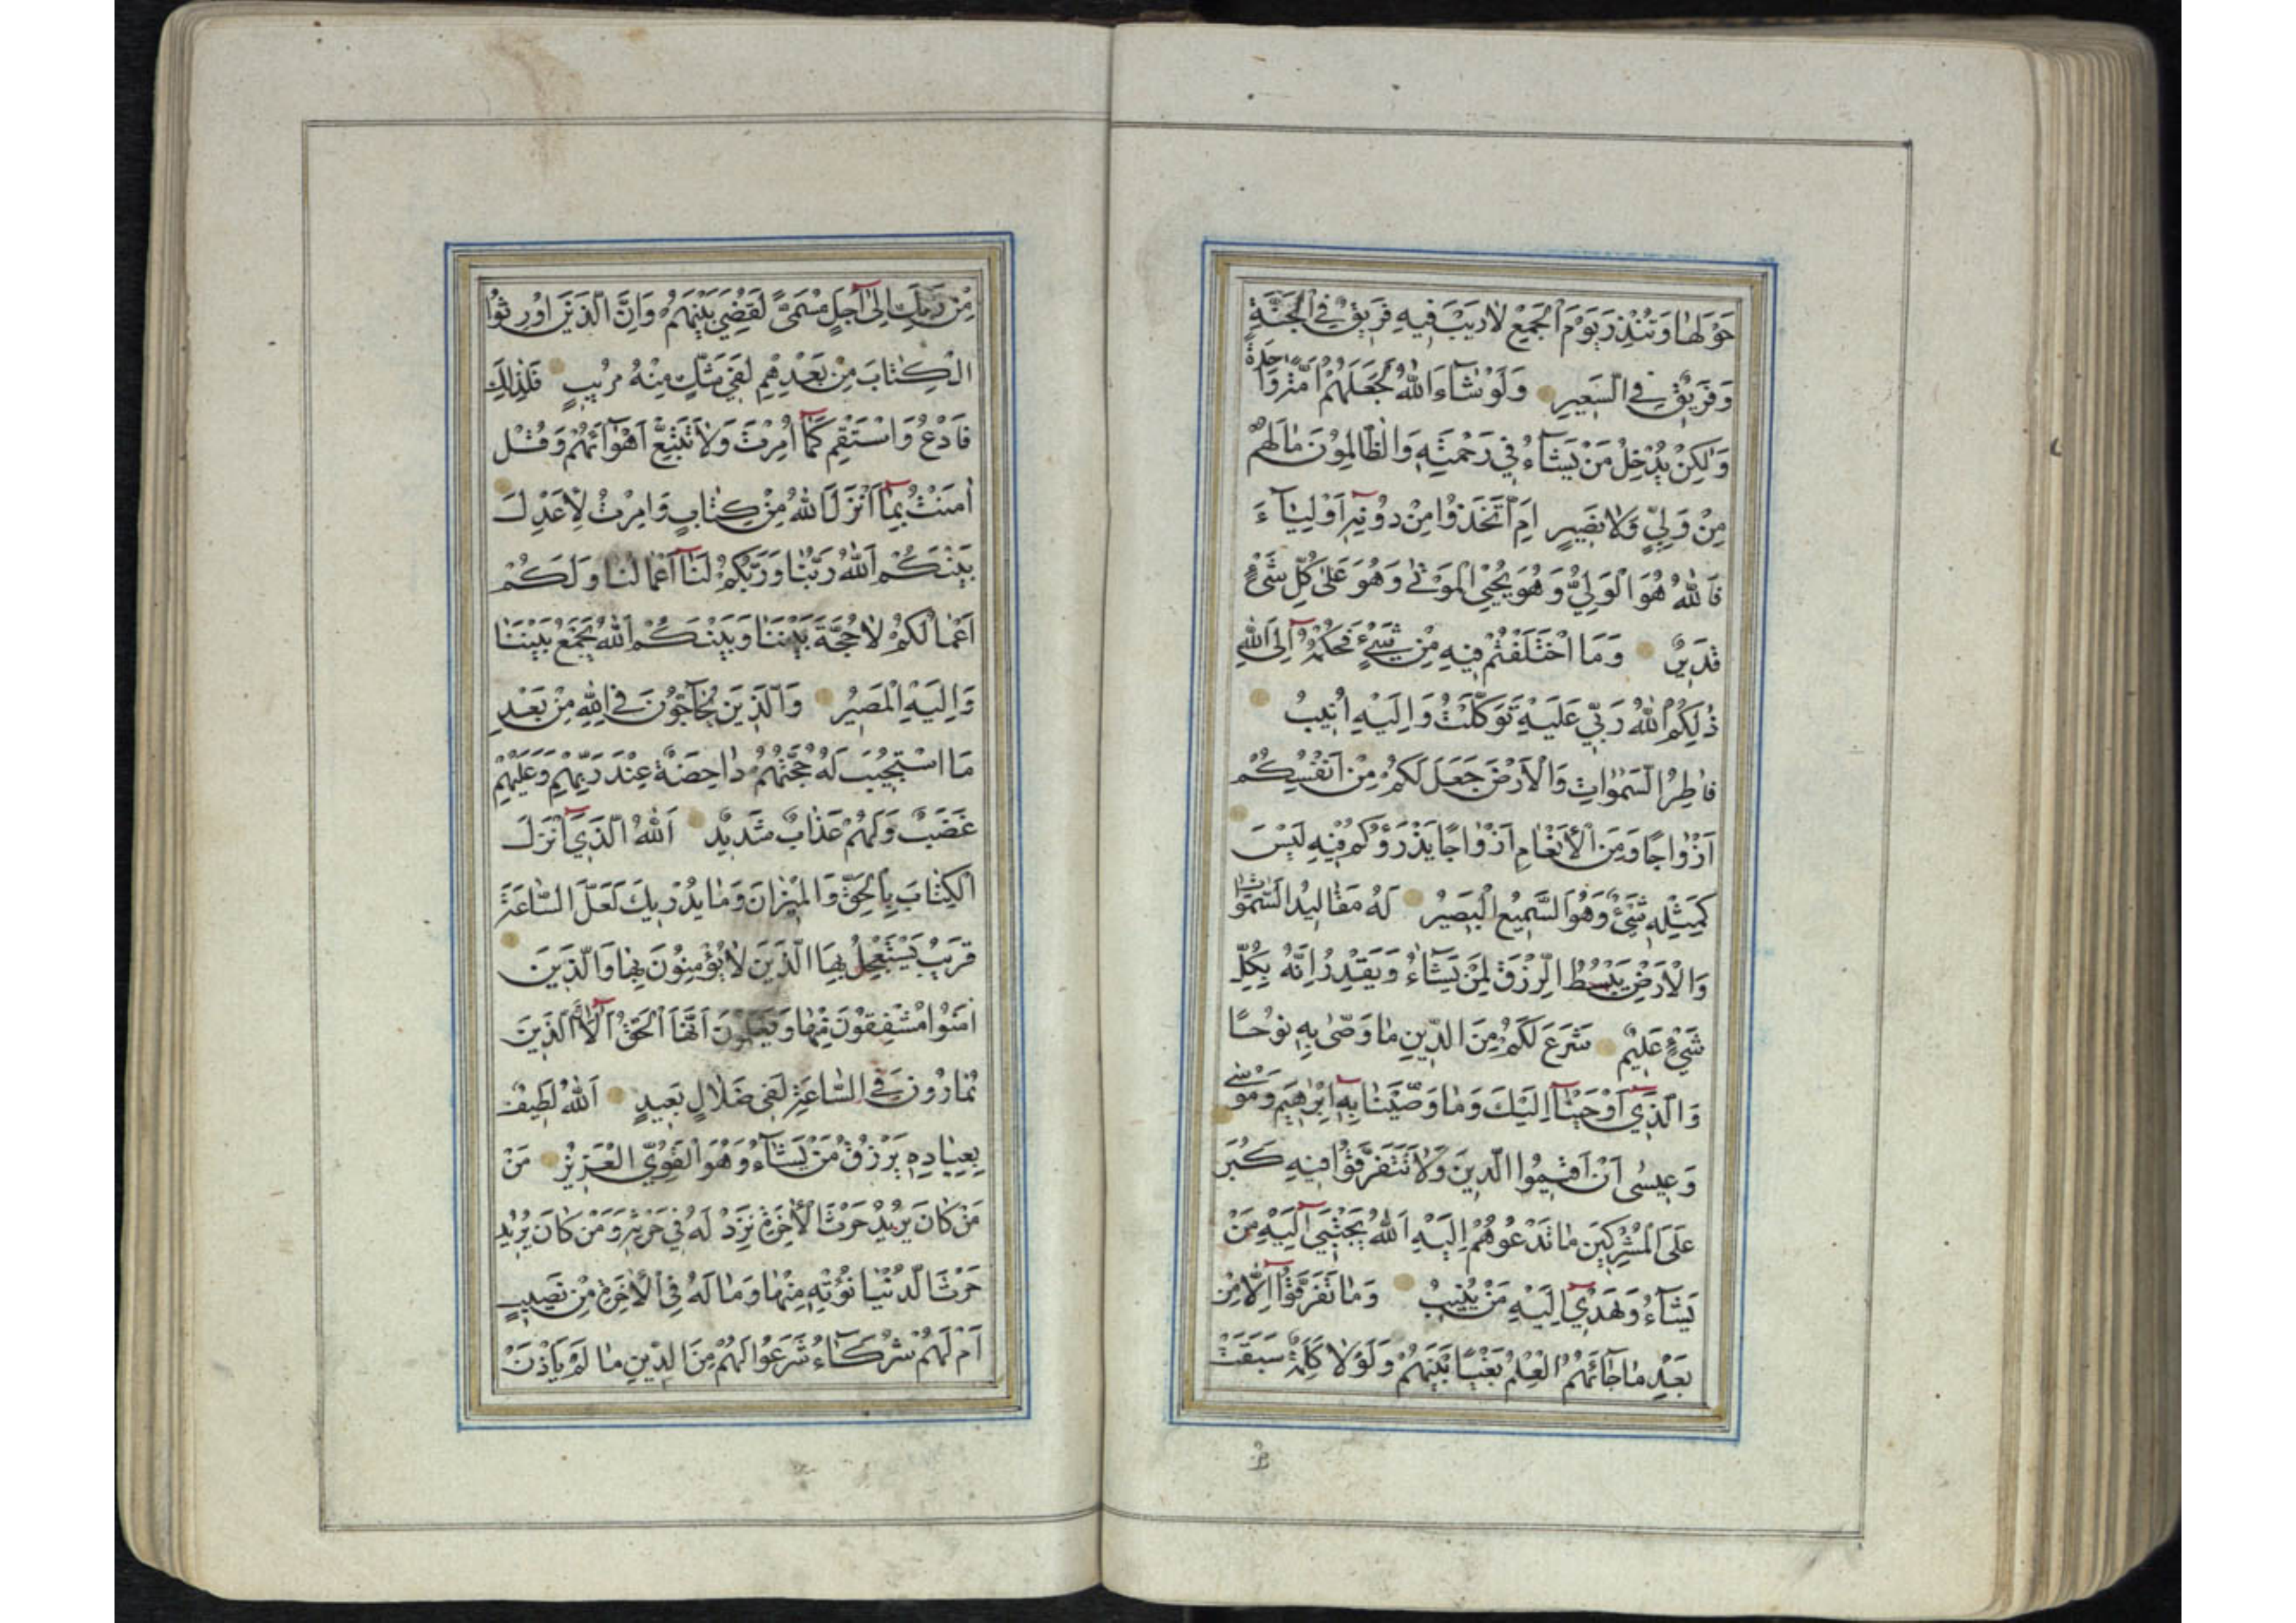 حَوْلَهٰا وَتُنْذِرَ يَوْمَ الْجَمْعِ لٰا رَيْبَ فِيهِ فَرِيقٌ فِي الْجَنَّةِ
وَفَرِيقٌ فِي السَّعِيرِ وَلَوْ شٰآءَ اللّٰهُ لَجَعَلَهُمْ اُمَّةً وٰاحِدَةً
وَلٰكِنْ يُدْخِلُ مَنْ يَشٰآءُ فِي رَحْمَتِهِ وَالظّٰالِمُونَ مٰا لَهُمْ
مِنْ وَلِيٍّ وَلٰا نَصِيرٍ اَمِ اتَّخَذُوا مِنْ دُونِهِ اَوْلِيٰآءَ
فَاللّٰهُ هُوَ الْوَلِيُّ وَهُوَ يُحْيِي الْمَوْتٰى وَهُوَ عَلٰى كُلِّ شَيْءٍ
قَدِيرٌ وَمَا اخْتَلَفْتُمْ فِيهِ مِنْ شَيْءٍ فَحُكْمُهُ اِلَى اللّٰهِ
ذٰلِكُمُ اللّٰهُ رَبِّي عَلَيْهِ تَوَكَّلْتُ وَاِلَيْهِ اُنِيبُ
فٰاطِرُ السَّمٰوٰاتِ وَالْاَرْضِ جَعَلَ لَكُمْ مِنْ اَنْفُسِكُمْ
اَزْوٰاجًا وَمِنَ الْاَنْعٰامِ اَزْوٰاجًا يَذْرَؤُكُمْ فِيهِ لَيْسَ
كَمِثْلِهِ شَيْءٌ وَهُوَ السَّمِيعُ الْبَصِيرُ لَهُ مَقٰالِيدُ السَّمٰوٰاتِ
وَالْاَرْضِ يَبْسُطُ الرِّزْقَ لِمَنْ يَشٰآءُ وَيَقْدِرُ اِنَّهُ بِكُلِّ
شَيْءٍ عَلِيمٌ شَرَعَ لَكُمْ مِنَ الدِّينِ مٰا وَصّٰى بِهِ نُوحًا
وَالَّذِي اَوْحَيْنٰا اِلَيْكَ وَمٰا وَصَّيْنٰا بِهِ اِبْرٰهِيمَ وَمُوسٰى
وَعِيسٰى اَنْ اَقِيمُوا الدِّينَ وَلٰا تَتَفَرَّقُوا فِيهِ كَبُرَ
عَلَى الْمُشْرِكِينَ مٰا تَدْعُوهُمْ اِلَيْهِ اَللّٰهُ يَجْتَبِي اِلَيْهِ مَنْ
يَشٰآءُ وَيَهْدِي اِلَيْهِ مَنْ يُنِيبُ وَمٰا تَفَرَّقُوا اِلّٰا مِنْ
بَعْدِ مٰا جٰائَهُمُ الْعِلْمُ بَغْيًا بَيْنَهُمْ وَلَوْلٰا كَلِمَةٌ سَبَقَتْ
مِنْ رَبِّكَ اِلٰى اَجَلٍ مُسَمًّى لَقُضِيَ بَيْنَهُمْ وَاِنَّ الَّذِينَ اُورِثُوا
الْكِتٰابَ مِنْ بَعْدِهِمْ لَفِي شَكٍّ مِنْهُ مُرِيبٍ فَلِذٰلِكَ
فَادْعُ وَاسْتَقِمْ كَمٰا اُمِرْتَ وَلٰا تَتَّبِعْ اَهْوٰائَهُمْ وَقُلْ
اٰمَنْتُ بِمٰا اَنْزَلَ اللّٰهُ مِنْ كِتٰابٍ وَاُمِرْتُ لِاَعْدِلَ
بَيْنَكُمُ اَللّٰهُ رَبُّنٰا وَرَبُّكُمْ لَنٰا اَعْمٰالُنٰا وَلَكُمْ
اَعْمٰالُكُمْ لٰا حُجَّةَ بَيْنَنٰا وَبَيْنَكُمُ اَللّٰهُ يَجْمَعُ بَيْنَنٰا
وَاِلَيْهِ الْمَصِيرُ وَالَّذِينَ يُحٰآجُّونَ فِي اللّٰهِ مِنْ بَعْدِ
مَا اسْتُجِيبَ لَهُ حُجَّتُهُمْ دٰاحِضَةٌ عِنْدَ رَبِّهِمْ وَعَلَيْهِمْ
غَضَبٌ وَلَهُمْ عَذٰابٌ شَدِيدٌ اَللّٰهُ الَّذِي اَنْزَلَ
الْكِتٰابَ بِالْحَقِّ وَالْمِيزٰانَ وَمٰا يُدْرِيكَ لَعَلَّ السّٰاعَةَ
قَرِيبٌ يَسْتَعْجِلُ بِهَا الَّذِينَ لٰا يُؤْمِنُونَ بِهٰا وَالَّذِينَ
اٰمَنُوا مُشْفِقُونَ مِنْهٰا وَيَعْلَمُونَ اَنَّهَا الْحَقُّ اَلٰا اِنَّ الَّذِينَ
يُمٰارُونَ فِي السّٰاعَةِ لَفِي ضَلٰالٍ بَعِيدٍ اَللّٰهُ لَطِيفٌ
بِعِبٰادِهِ يَرْزُقُ مَنْ يَشٰآءُ وَهُوَ الْقَوِيُّ الْعَزِيزُ مَنْ
مَنْ كٰانَ يُرِيدُ حَرْثَ الْاٰخِرَةِ نَزِدْ لَهُ فِي حَرْثِهِ وَمَنْ كٰانَ يُرِيدُ
حَرْثَ الدُّنْيٰا نُؤْتِهِ مِنْهٰا وَمٰا لَهُ فِي الْاٰخِرَةِ مِنْ نَصِيبٍ
اَمْ لَهُمْ شُرَكٰاءُ شَرَعُوا لَهُمْ مِنَ الدِّينِ مٰا لَمْ يَاْذَنْ